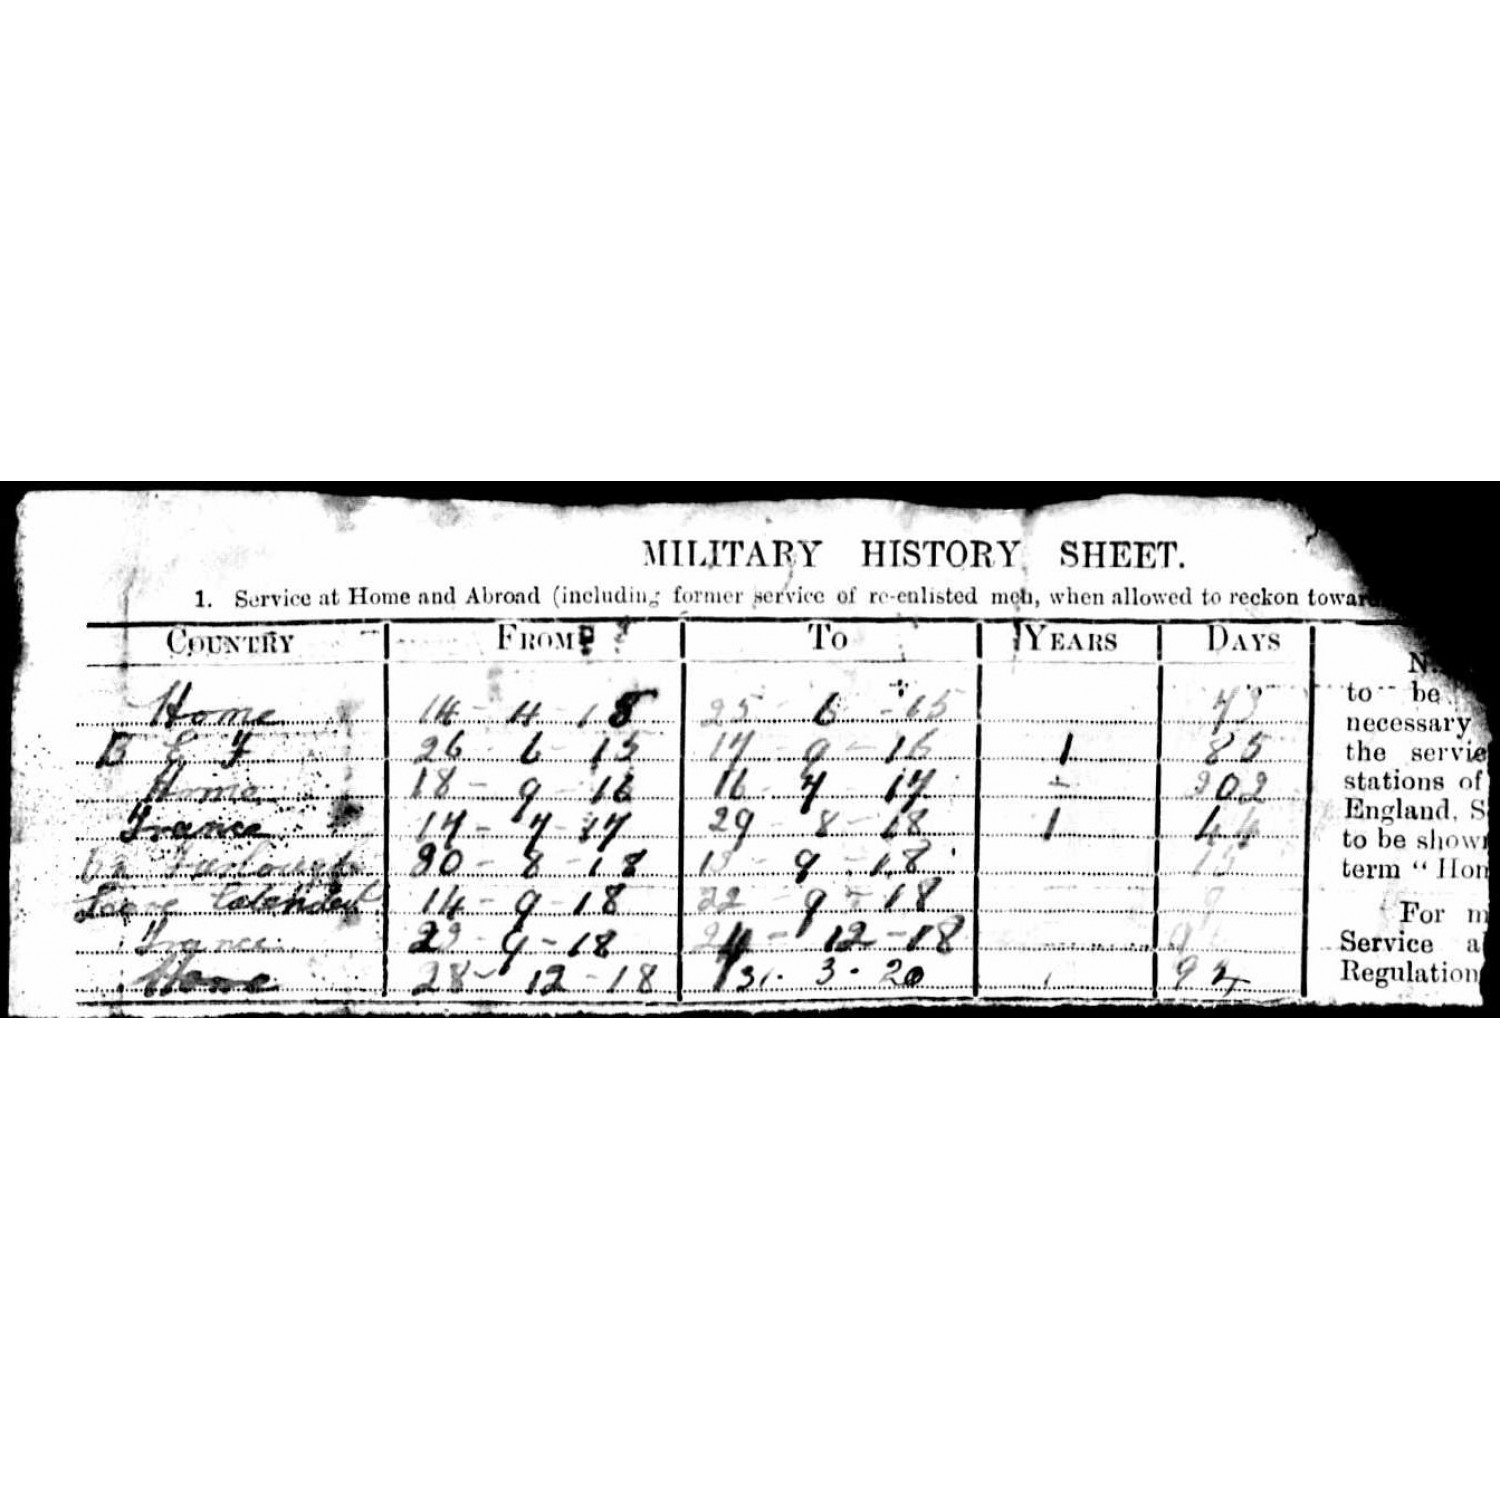 MILITARY HISTORY SHEET.
1. Service at Home and Abroad (including former service of re-enlisted men, when allowed to reckon
COUNTRY FROM TO YEARS DAYS
Home 14 - 4 - 18 25 - 6 - 15 73
B E F 26 - 6 - 15 17 - 9 - 16 1 85
Home 18 - 9 - 16 16 - 7 - 17 - 202
France 17 - 7 - 17 29 - 8 - 18 1 44
On Furlough 30 - 8 - 18 13 - 9 - 18 15
Leave Extended 14 - 9 - 18 22 - 9 - 18 9
France 23 - 9 - 18 12 - 18
Home 28 - 12 - 18 31. 3. 20
N.
to be
necessary
the
stations of
England,
to be
term "
For
Service